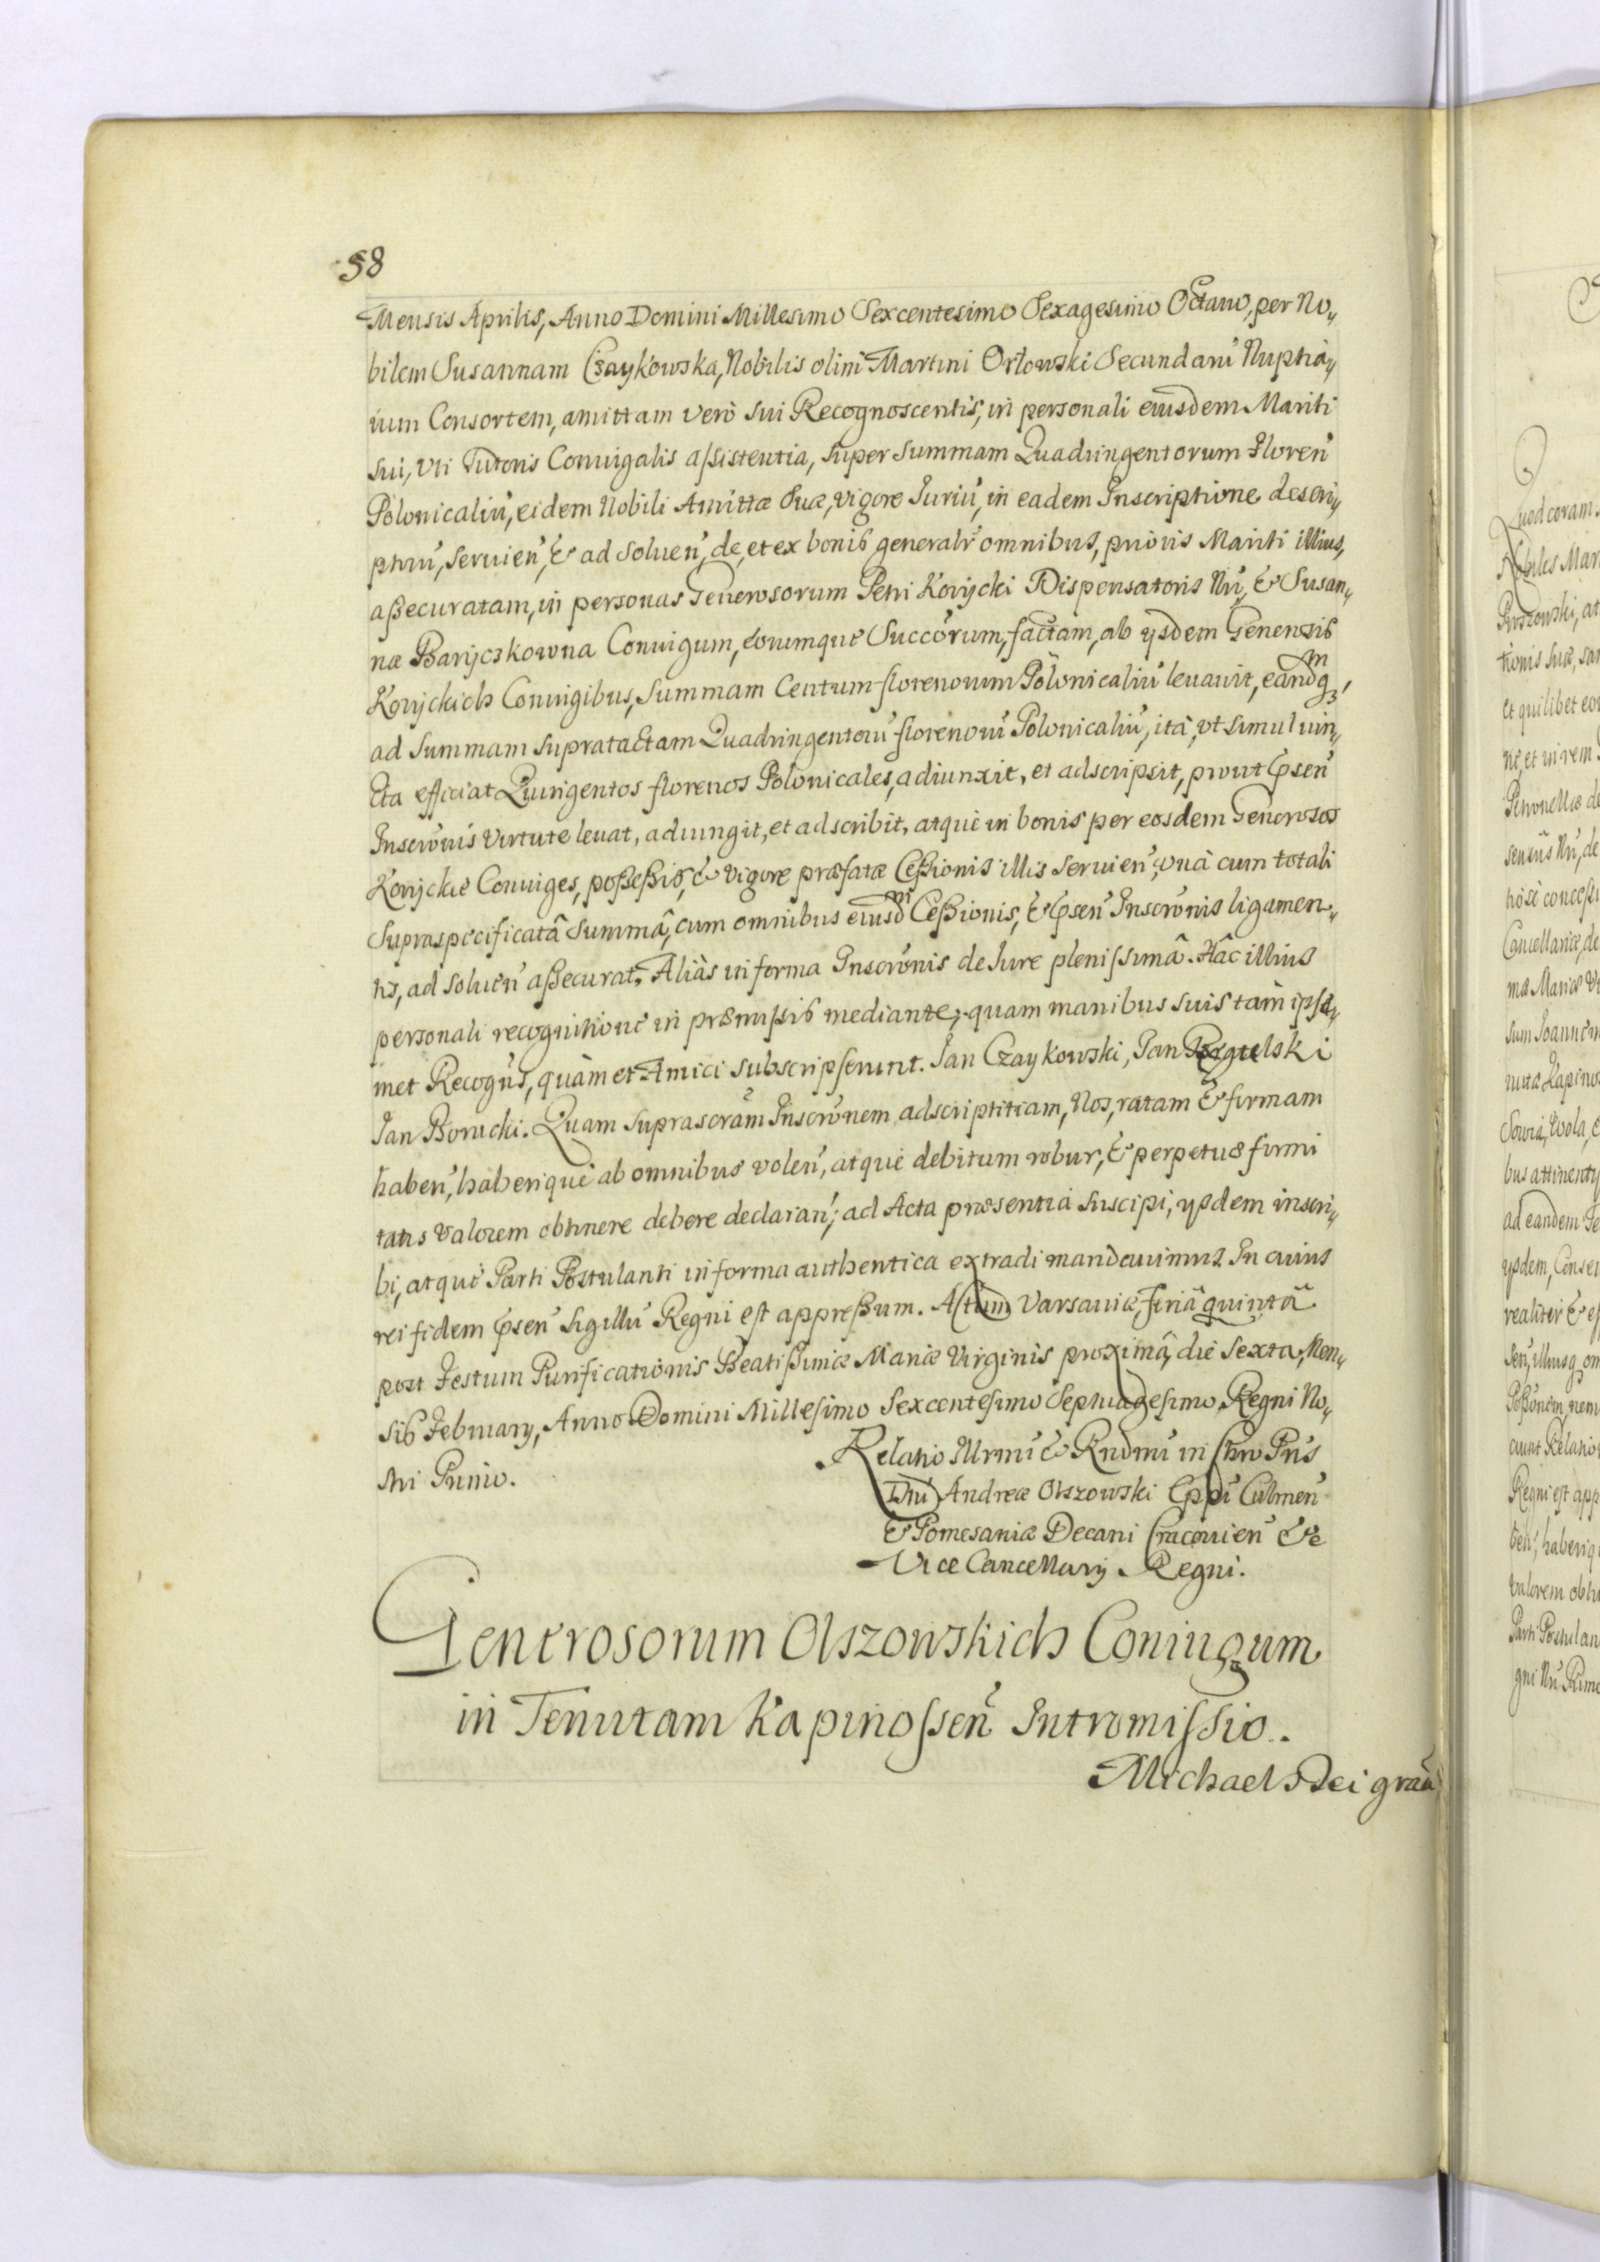 58
Mensis Aprilis, Anno Domini Millesimo Sexcentesimo Sexagesimo Octauo, per No„
bilem Susannam Czaykowska, Nobilis olim Martini Orłowski Secundarū Nuptia„
rum Consortem, amittam verò sui Recognoscentis, in personali eiusdem Mariti
sui, vti Tutoris Coniugalis assistentia, super summam Quadringentorum Floreń
Polonicaliū, eidem Nobili Amittæ suæ, vigore Iuriū, in eadem Inscriptione descri„
ptorū, seruień, & ad solueń, de, et ex bonis generalr̃ omnibus, prioris Mariti illius,
assecuratam, in personas Generosorum Petri Korycki Dispensatoris Nr̃i, & Susan„
næ Baryczkowna Coniugum, eorumque Succorum, factam, ab ysdem Generosis
Koryckich Coniugibus, summam Centum florenorum Polonicaliū leuauit, eandmq3,
ad summam supratactam Quadringentorū florenorū Polonicaliū, ità, vt simul iun„
cta efficiat Quingentos florenos Polonicales, adiunxit, et adscripsit, prout pseń
Inscrōnis virtute leuat, adiungit, et adscribit, atque in bonis per eosdem Generosos
Koryckie Coniuges, possessis, & vigore præfatæ Cessionis illis seruień, vnà cum totali
supraspecificatâ summâ, cum omnibus eiusdm Cessionis, & pseń Inscrōnis ligamen„
tis, ad soluēn assecurat. Aliàs in forma Inscrōnis de Iure plenissimâ. Hâc illius
personali recognitione in præmissis mediante, quam manibus suis tàm ipse„
met Recogñs, quàm et Amici subscripserunt. Jan Czaykowski, Jan
Jan Borucki. Quam suprascrãm Inscrōnem adscriptitiam, Nos, ratam & firmam
habeń, haberique ab omnibus voleń, atque debitum robur, & perpetuæ firmi
tatis valorem obtinere debere declarań; ad Acta præsentia suscipi, ysdem inscri„
bi, atquè Parti Postulanti in forma authentica extradi mandauimus. In cuius
rei fidem pseń sigillū Regni est appressum. Actum Varsauiæ, Feriâ quintâ
post Festum Purificationis Beatissimæ Mariæ Virginis proximâ, die sexta, Men„
sis February, Anno Domini Millesimo Sexcentesimo Septuagesimo, Regni No„
stri Primo.
Relatio Illrmi & Rndmi in Chro Pris
Dñi Andreæ Olszowski Eppi Culmeń
& Pomesaniæ Decani Cracouień &c
Vice Cancellary Regni.
Generosorum Olszowskich Coniugum
in Tenutam Kapinosseń Intromissio.
Michael Dei graã
Quod coram
Nobiles Mar